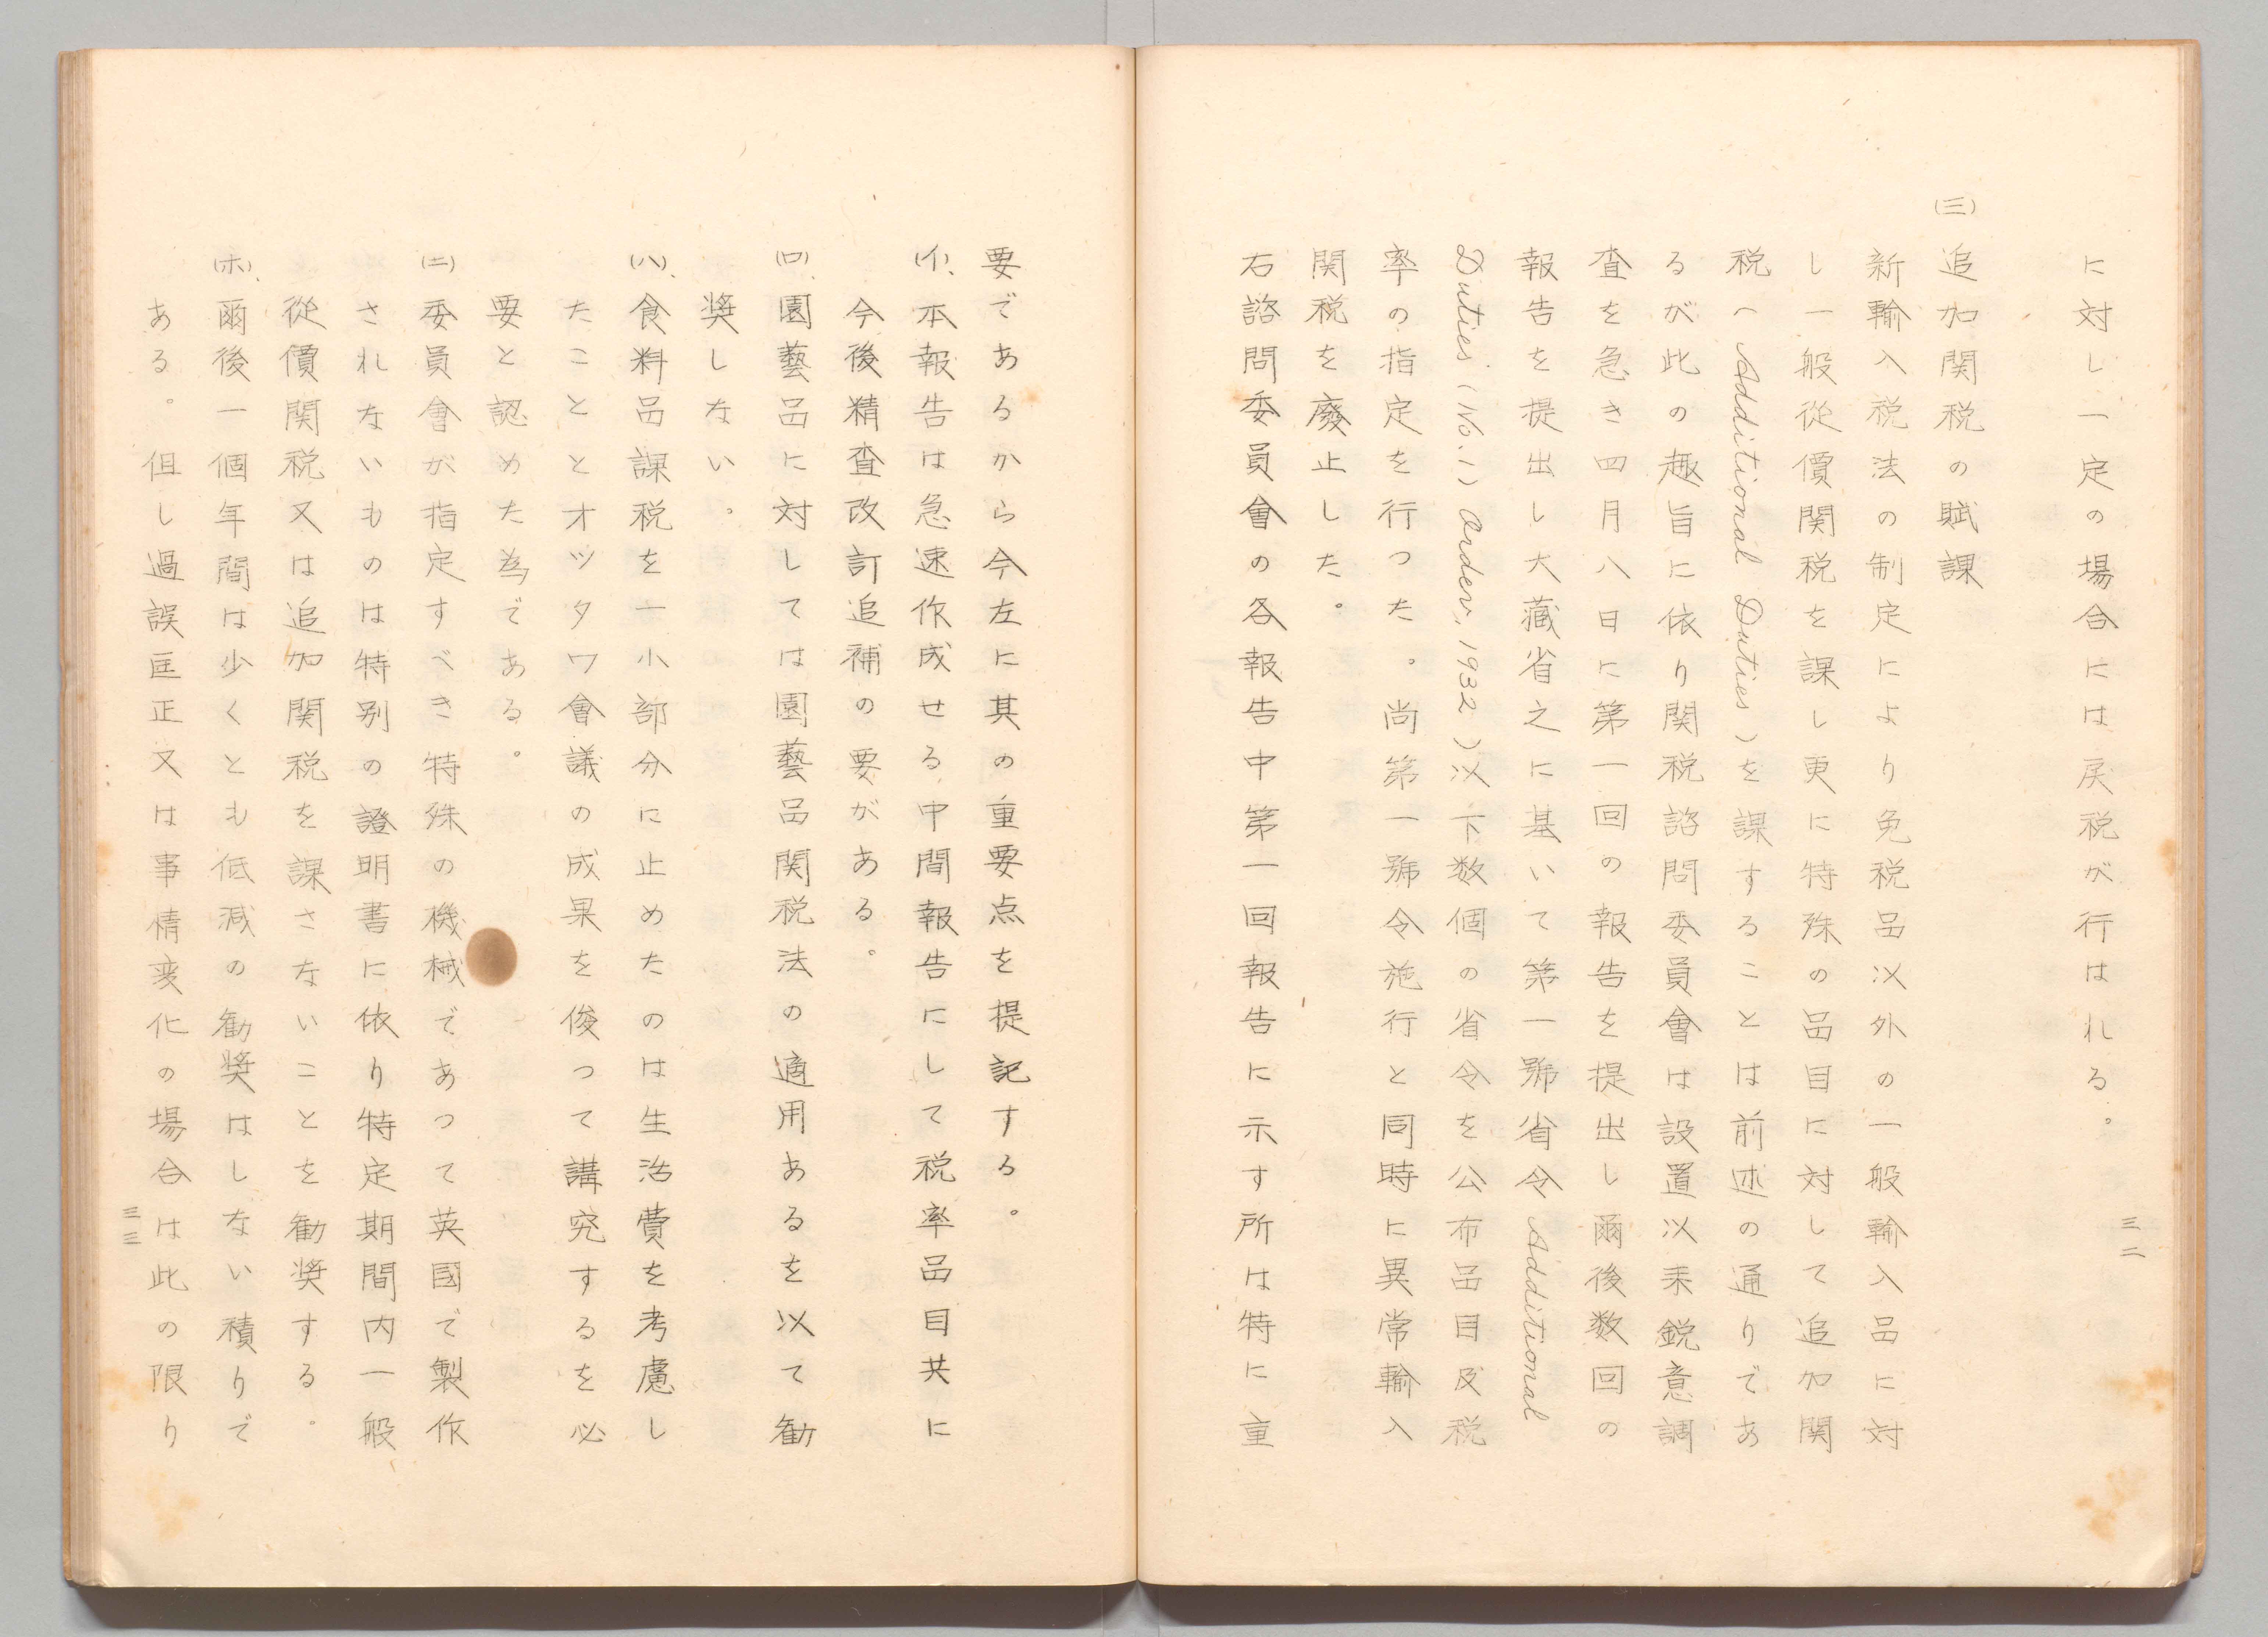 に対し一定の場合には戻税が行はれる。
(三)追加関税の賦課
新輸入税法の制定により免税品以外の一般輸入品に対
し一般従價関税を課し更に特殊の品目に対して追加関
税(Additional Duties)を課することは前述の通りであ
るが此の趣旨に依り関税諮問委員會は設置以来鋭意調
査を急き四月八日に第一回の報告を提出し爾後数回の
報告を提出し大藏省之に基いて第一號省令Additional
Duties (No.1) Order, 1932)以下数個の省令を公布品目及税
率の指定を行つた。尚第一號令施行と同時に異常輸入
関税を廢止した。
右諮問委員會の各報告中第一回報告に示す所は特に重
三二
要であるから今左に其の重要点を提記する。
(イ)、本報告は急速作成せる中間報告にして税率品目共に
今後精査改訂追補の要がある。
(ロ)、園藝品に対しては園藝品関税法の適用あるを以て勧
奨しない。
(ハ)、食料品課税を一小部分に止めたのは生活費を考慮し
たこととオツタワ會議の成果を俟つて講究するを必
要と認めた為である。
(ニ)委員會が指定すべき特殊の機械であつて英國で製作
されないものは特別の證明書に依り特定期間内一般
従價関税又は追加関税を課さないことを勧奨する。
(ホ)、爾後一個年間は少くとも低減の勧奨はしない積りで
ある。但し過誤匡正又は事情変化の場合は此の限り
三三